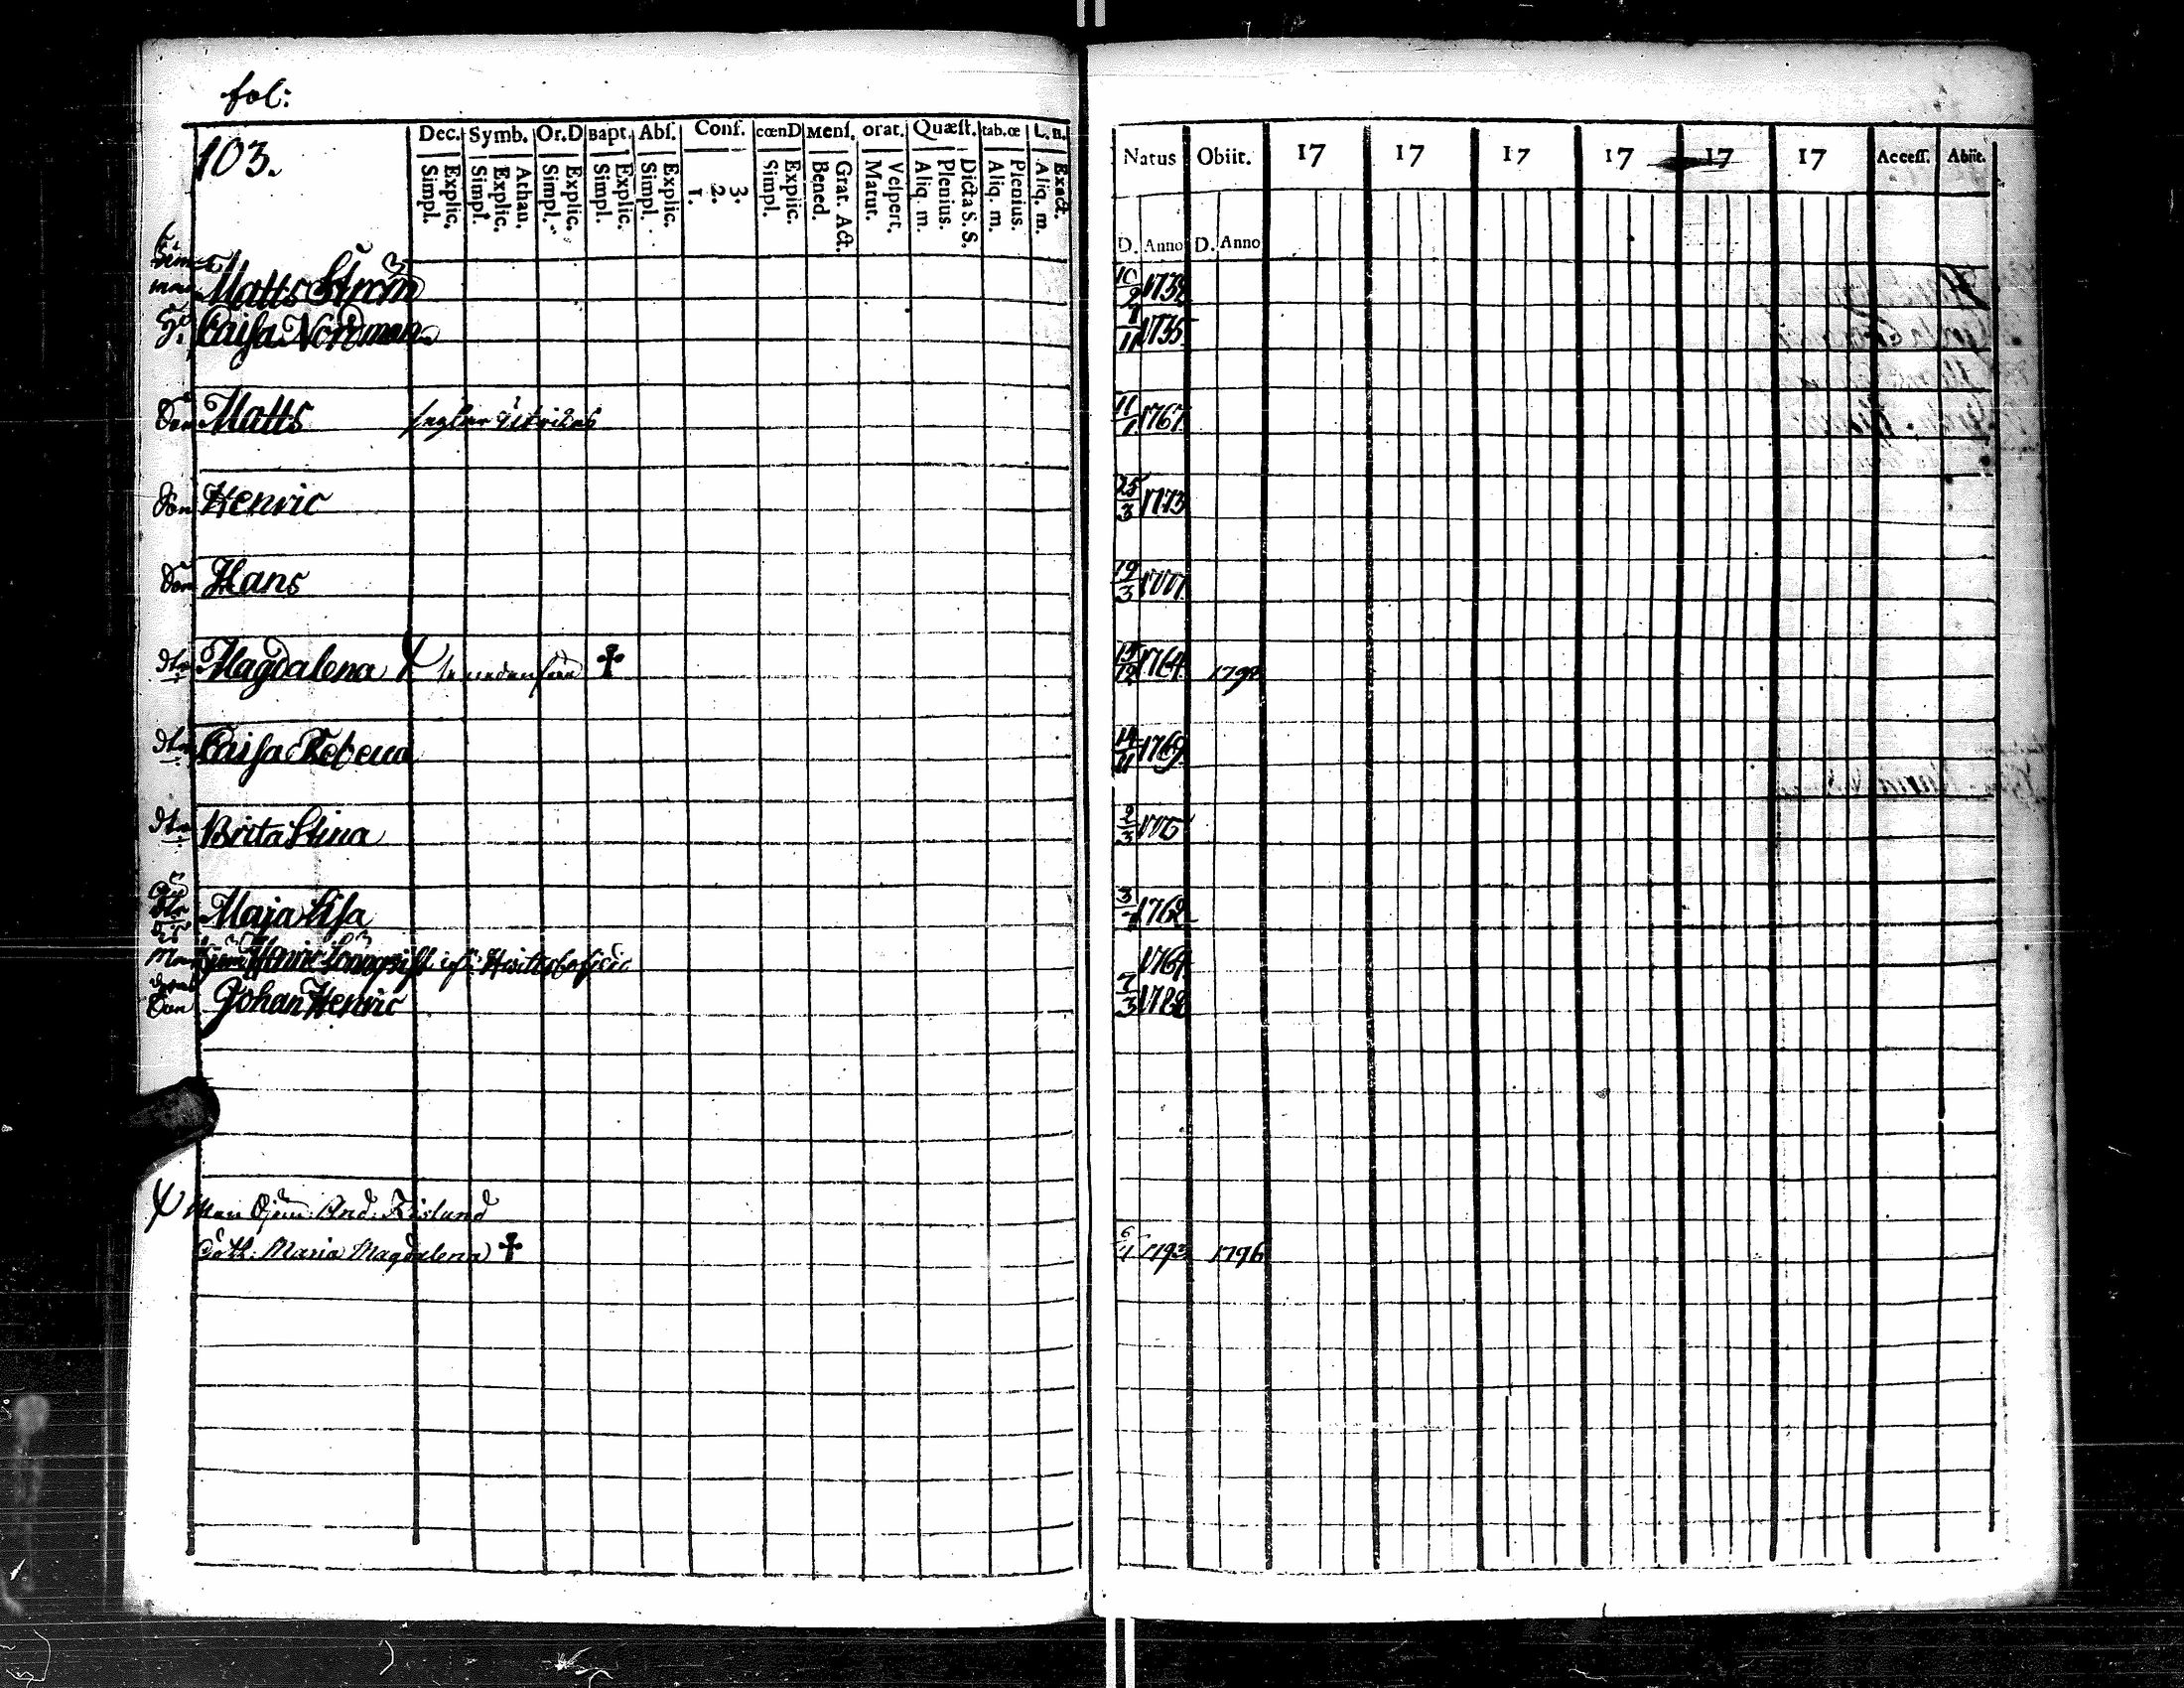 fol:
103.
Dec. Symb. Or. D Bapt. Abſ. Conf. cœnD Menſ. orat. Quæſt. tab. œ L. n.
Simpl. Explic. Simpl. Explic. Athan. Simpl. Explic. Simpl. Explic. Simpl. Explic. 1. 2. 3. Simpl. Explic. Bened. Grat. Act. Matut. Veſpert. Aliq. m. Plenius. Dicta S. S. Aliq. m. Plenius. Aliq. m. Exact.
Natus Obiit. 17 17 17 17 17 17 Acceſſ. Abiit.
D. Anno D. Anno
Matts Ström 10/2 1732
Caisa Nordman 1/11 1735
Son Matts seglar utrikes 11/1 1767
Son Henric 25/3 1773
Son Hans 19/3 1777
dtr Magdalena ✝ 15/12 1764 1798
dtr Caisa Rebecca 14/11 1769
dtr Brita Stina 2/3 1775
dtr Maja Lisa 3/7 1762
Man Henric 1764
Son Johan Henric 7/3 1788
Man And:
Doth: Maria Magdalena ✝ 6/1 1793 1796